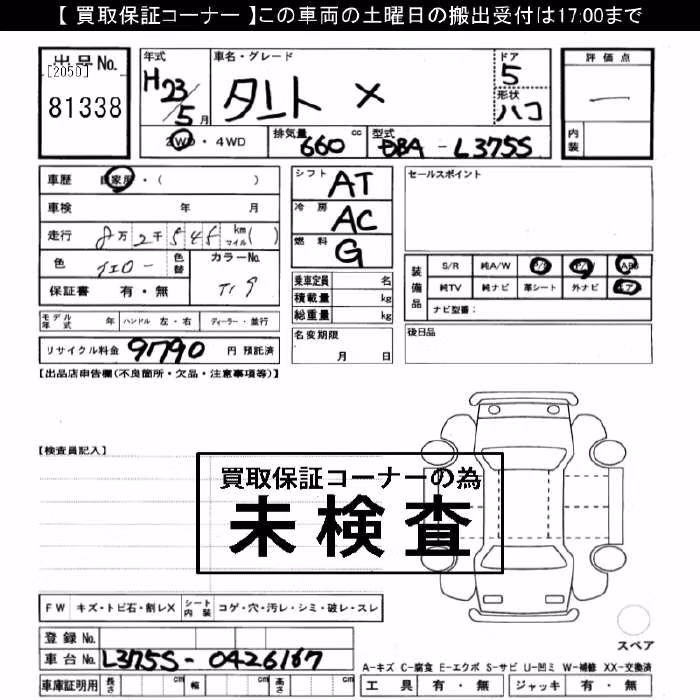 【 買取保証コーナー 】この車両の土曜日の搬出受付は17:00まで
出品No.
[2050]
81338
年式
H23/5月
車名・グレード
タント X
ドア
5
形状
ハコ
評価点
―
内装
2WD・4WD
排気量 660 cc
型式 DBA - L375S
車歴 自家用・( )
車検 年 月
走行 8万2千545 km マイル( )
色 イエロー 色替
カラーNo.
保証書 有・無
シフト AT
冷房 AC
燃料 G
乗車定員 名
積載量 kg
総重量 kg
セールスポイント
装備品
S/R 純A/W P/S P/W ABS
純TV 純ナビ 革シート 外ナビ エア
ナビ型番:
モデル年式 年 ハンドル 左・右 ディーラー・並行
名変期限
月 日
後日品
リサイクル料金 9790 円 預託済
【出品店申告欄(不良箇所・欠品・注意事項等)】
【検査員記入】
買取保証コーナーの為
未検査
FW キズ・トビ石・割レX シート内装 コゲ・穴・汚レ・シミ・破レ・スレ
スペア
登録No.
車台No. L375S-0426167
A-キズ C-腐食 E-エクボ S-サビ U-凹ミ W-補修 XX-交換済
車庫証明用 長さ cm 幅 cm 高さ cm
工具 有・無 ジャッキ 有・無